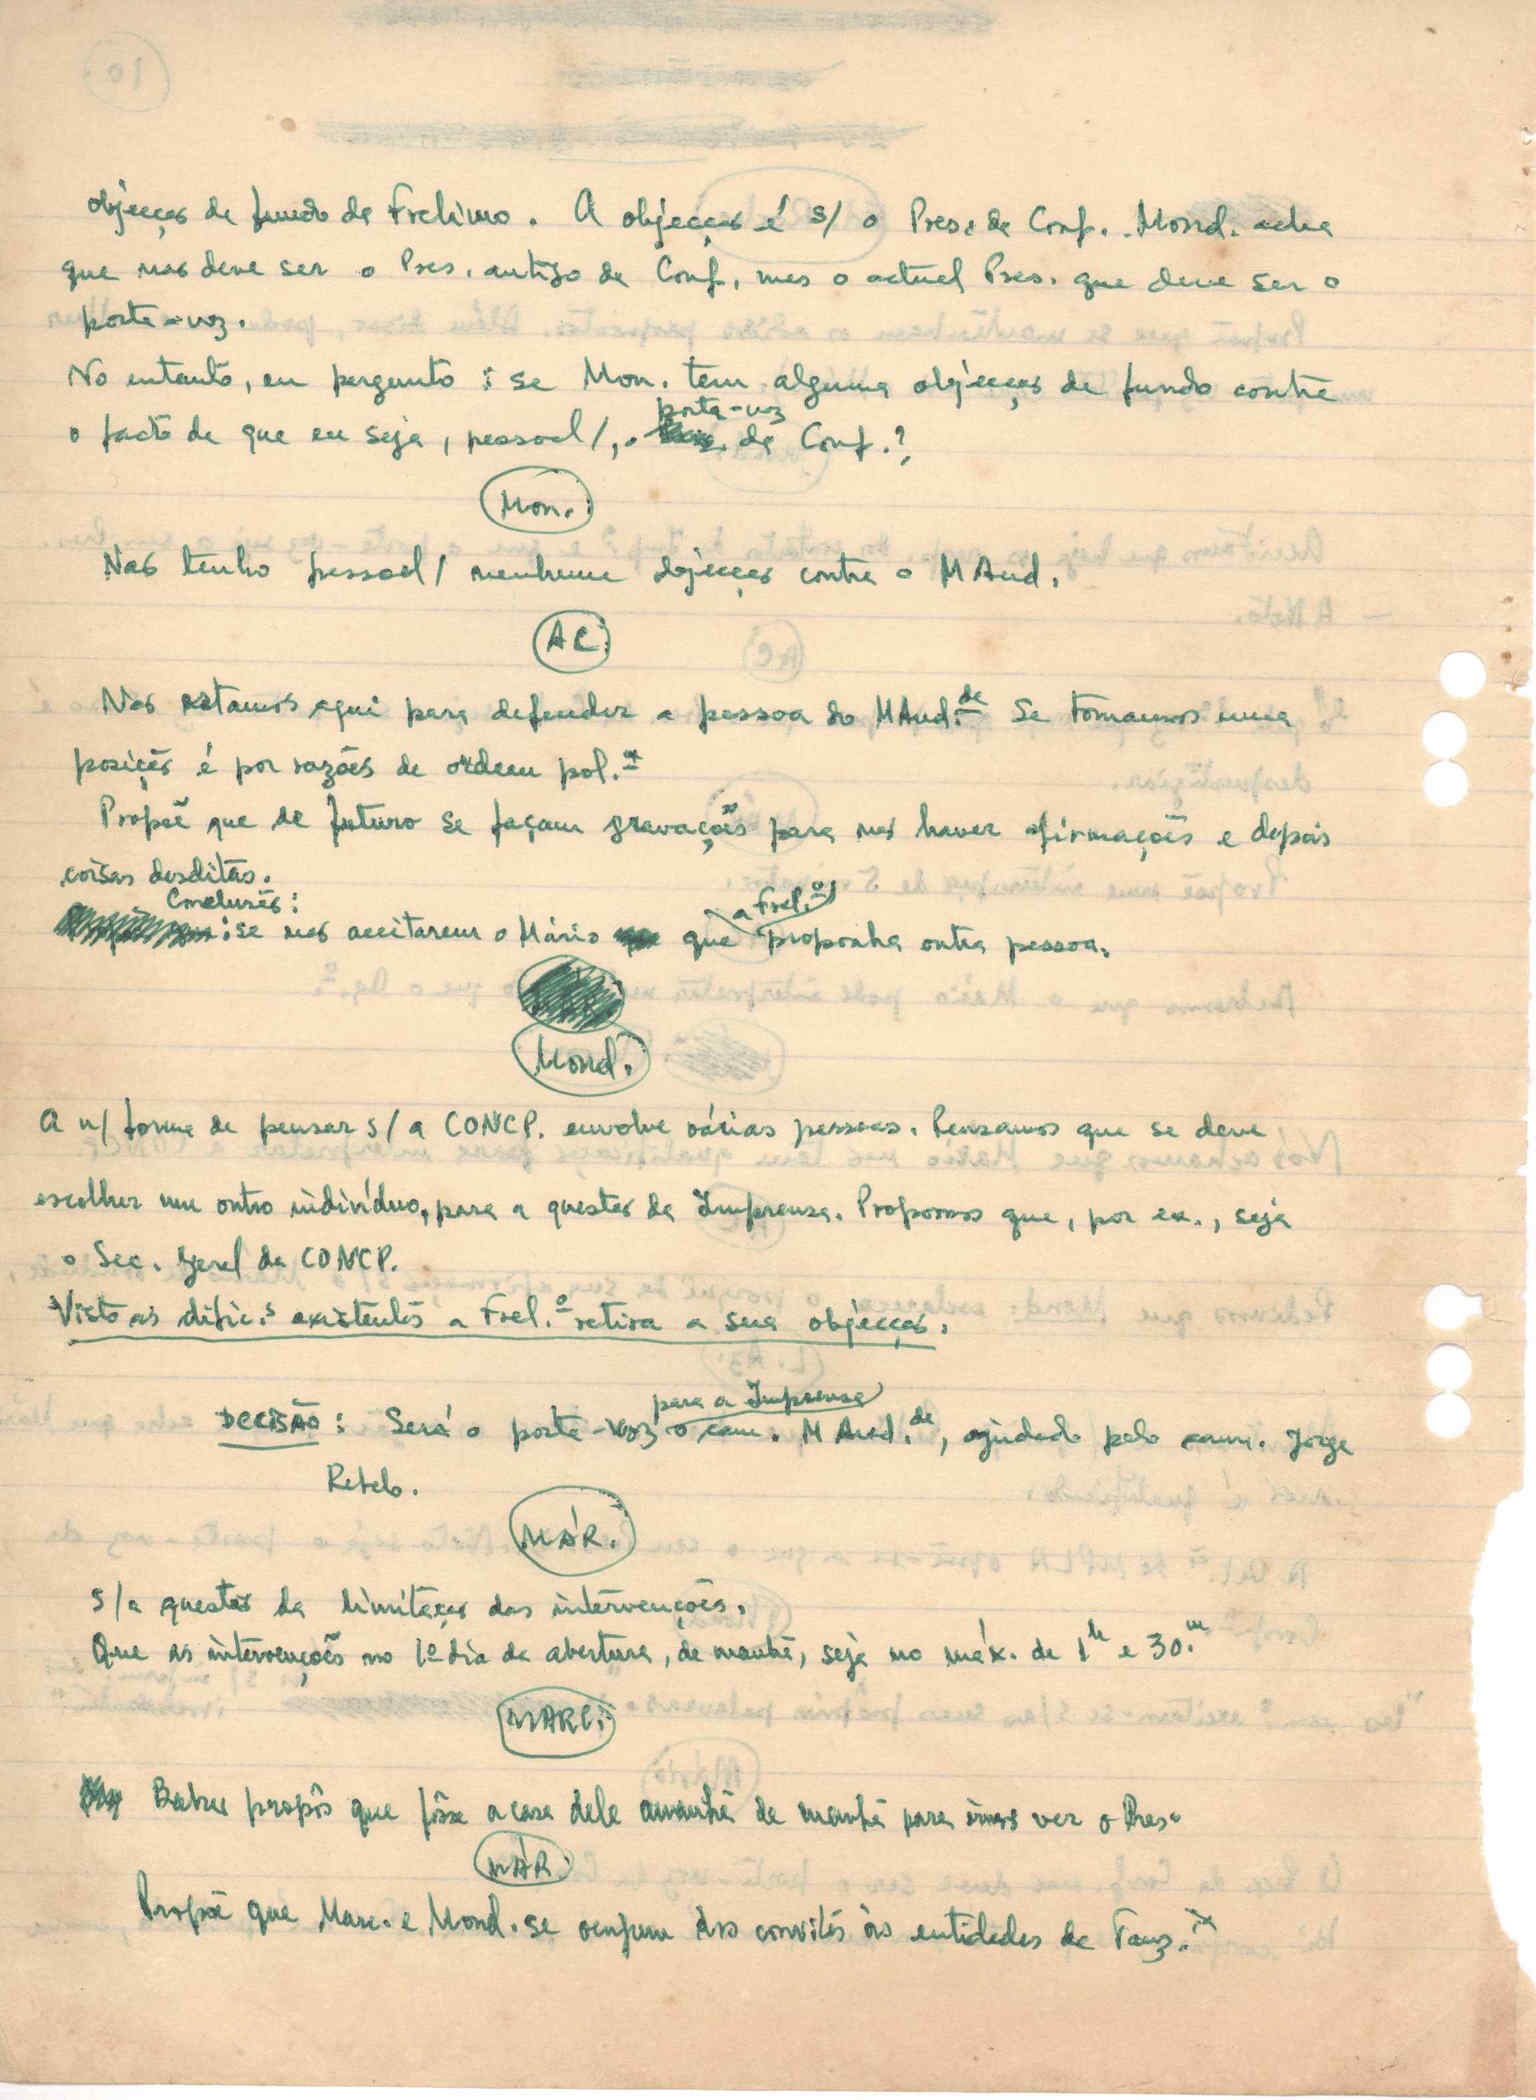 objecção de fundo da Frelimo. A objecção é s/ o Pres. da Conf. Mond. acha
que não deve ser o Pres. antigo da Conf. mas o actual Pres. que deve ser o
porta-voz.
No entanto, eu pergunto: se Mon. tem alguma objecção de fundo contra
o facto de que eu seja, pessoal/, o porta-voz da Conf.?
Mon.:
Não tenho pessoal/ nenhuma objecção contra o MAnd.
AC:
Não estamos aqui para defender a pessoa do MAnd.de Se tomamos uma
posição é por razões de ordem pol.ca
Propõe que de futuro se façam gravações para não haver afirmações e depois
coisas desditas.
Conclusão:
: se não aceitarem o Mário que a Frel.o proponha outra pessoa.
Mond.
A n/ forma de pensar s/ a CONCP. envolve várias pessoas. Pensamos que se deve
escolher um outro indivíduo, para a questão da Imprensa. Propomos que, por ex., seja
o Sec. Geral da CONCP.
Visto as dific.s existentes a Frel.o retira a sua objecção.
DECISÃO: Será o porta-voz para a Imprensa o cam. M And.de, ajudado pelo cam. Jorge
Rebelo.
MÁR.
S/a questão da limitação das intervenções.
Que as intervenções no 1º dia da abertura, de manhã, seja no máx. de 1h e 30.m
MARC:
Babu propôs que fôsse a casa dele amanhã de manhã para irmos ver o Pres.
MÁR:
Propõe que Marc. e Mond. se ocupem dos convites às entidades da Tanz.ia